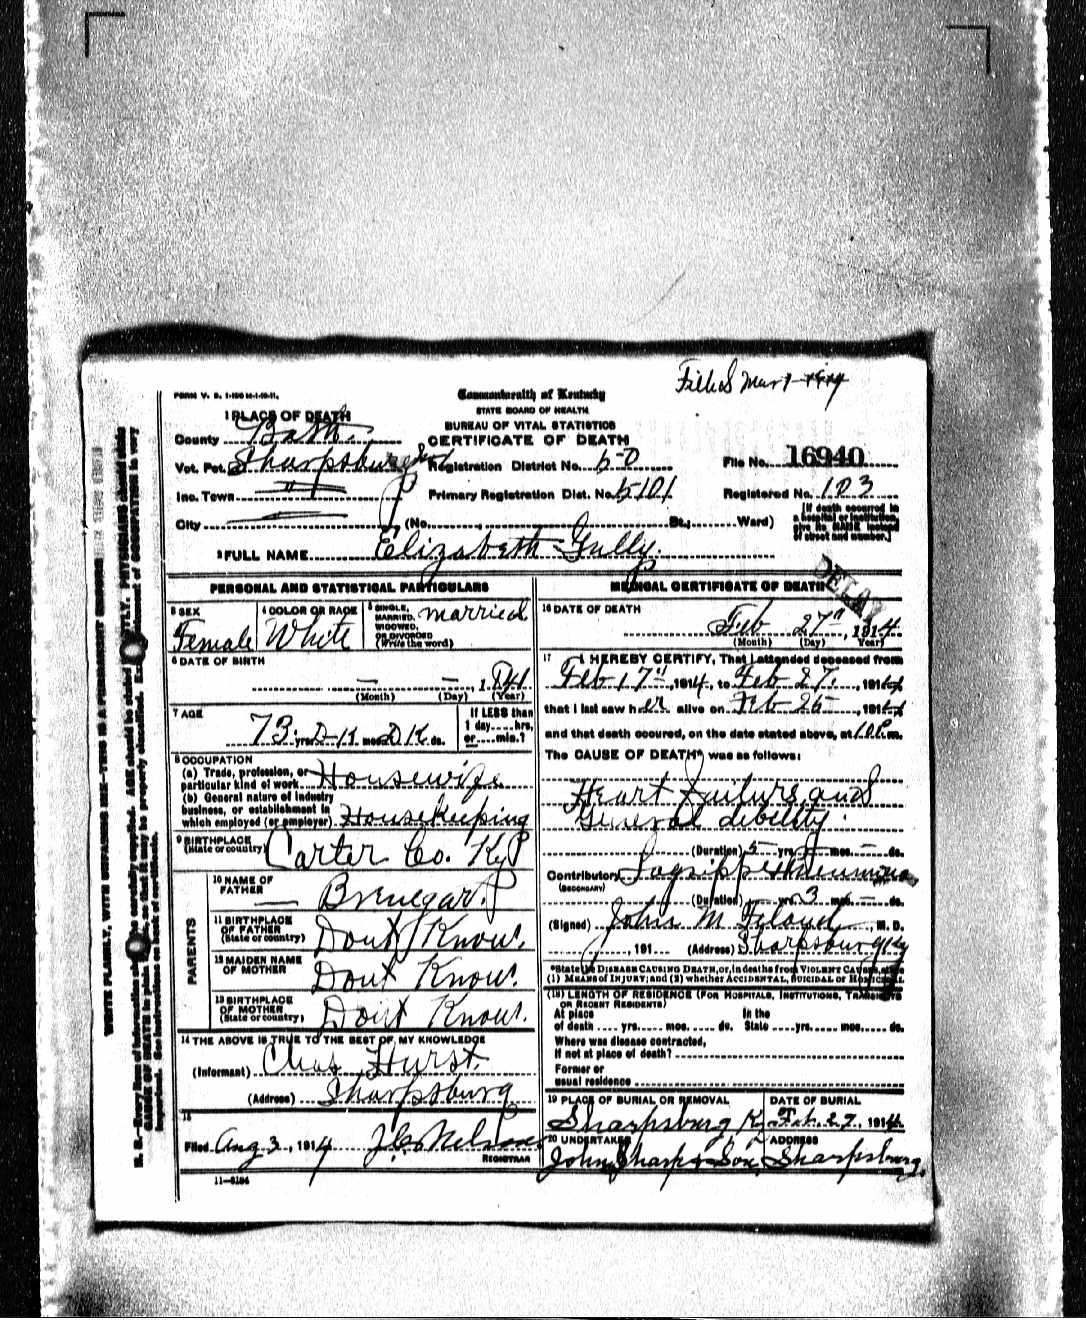 Filed Mar 1 1914
FORM V. S. 1
Commonwealth of Kentucky
STATE BOARD OF HEALTH
BUREAU OF VITAL STATISTICS
CERTIFICATE OF DEATH
1 PLACE OF DEATH
County Bath.
Vot. Pct. Sharpsburg
Inc. Town
City
Registration District No.
Primary Registration Dist. No. 5101
File No. 16940
Registered No. 103
(No. St.; Ward)
[If death occurred in
a hospital or institution,
give its NAME instead
of street and number.]
2 FULL NAME Elizabeth Gully.
PERSONAL AND STATISTICAL PARTICULARS
3 SEX
Female
4 COLOR OR RACE
White
5 SINGLE,
MARRIED,
WIDOWED,
OR DIVORCED
(Write the word)
married
6 DATE OF BIRTH
— — , 1841
(Month) (Day) (Year)
7 AGE
73 yrs. D-K mos. D K ds.
If LESS than
1 day .... hrs.
or .... min.?
8 OCCUPATION
(a) Trade, profession, or
particular kind of work Housewife
(b) General nature of industry
business, or establishment in
which employed (or employer) Housekeeping
9 BIRTHPLACE
(State or country) Carter Co. Ky
PARENTS
10 NAME OF
FATHER — Brenegar.
11 BIRTHPLACE
OF FATHER
(State or country) Dont Know.
12 MAIDEN NAME
OF MOTHER Dont Know.
13 BIRTHPLACE
OF MOTHER
(State or country) Dont Know.
14 THE ABOVE IS TRUE TO THE BEST OF MY KNOWLEDGE
(Informant) Chas Hurst.
(Address) Sharpsburg
15
Filed Aug 3, 1914 Nelson
REGISTRAR
11—3184
MEDICAL CERTIFICATE OF DEATH
DELAY
16 DATE OF DEATH
Feb 27", 1914
(Month) (Day) (Year)
17 I HEREBY CERTIFY, That I attended deceased from
Feb 17", 1914, to Feb 27, 1914
that I last saw her alive on Feb 26, 1914
and that death occured, on the date stated above, at 10 P. m.
The CAUSE OF DEATH* was as follows:
Heart Failure and
General debility.
(Duration) 5 yrs. mos. — ds.
Contributory Lagrippe
(SECONDARY)
(Duration) yrs. 3 mos. — ds.
(Signed) John M. , M. D.
, 191 (Address) Sharpsburg Ky
*State the DISEASE CAUSING DEATH, or, in deaths from VIOLENT CAUSES, state
(1) MEANS of INJURY; and (2) whether ACCIDENTAL, SUICIDAL or HOMICIDAL
(18) LENGTH OF RESIDENCE (FOR HOSPITALS, INSTITUTIONS, TRANSIENTS
OR RECENT RESIDENTS)
At place In the
of death .... yrs. .... mos. .... ds. State .... yrs. .... mos. .... ds.
Where was disease contracted,
if not at place of death?
Former or
usual residence
19 PLACE OF BURIAL OR REMOVAL
Sharpsburg Ky
DATE OF BURIAL
Feb. 27, 1914
20 UNDERTAKER
John Sharp & Son,
ADDRESS
Sharpsburg.
WRITE PLAINLY, WITH UNFADING INK—THIS IS A PERMANENT RECORD